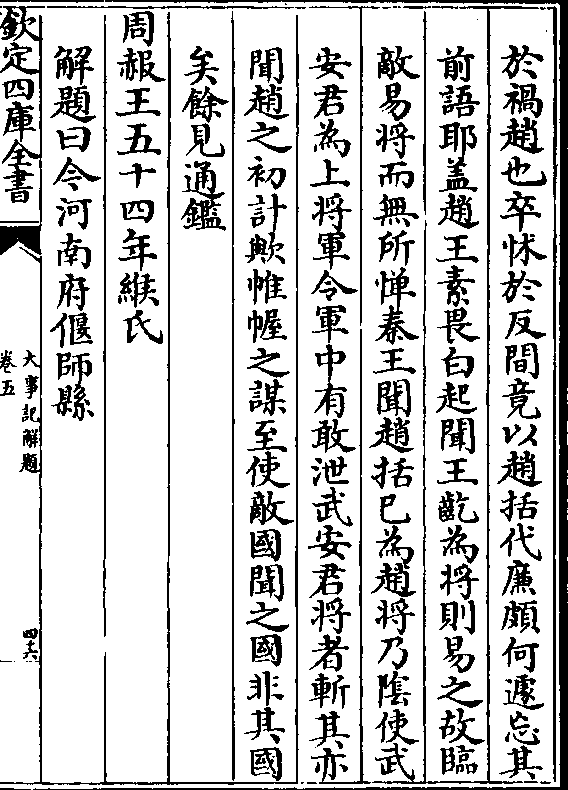 於禍趙也卒怵於反間竟以趙括代廉頗何遽忘其
前語耶盖趙王素畏白起聞王齕為將則易之故臨
敵易將而無所憚秦王聞趙括已為趙將乃隂使武
安君為上將軍令軍中有敢泄武安君將者斬其亦
聞趙之初計歟帷幄之謀至使敵國聞之國非其國
矣餘見通鑑
周赧王五十四年緱氏
解題曰今河南府偃師縣
欽定四庫全書
大事記解題
卷五
四十六